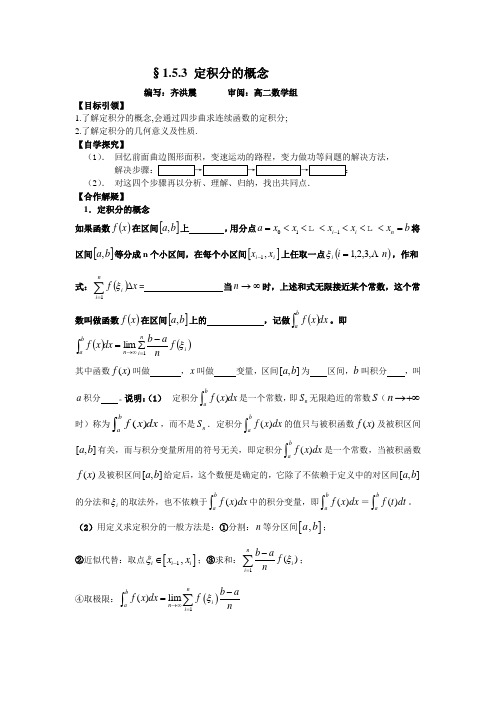 §1.5.3 定积分的概念
编写：齐洪震 审阅：高二数学组
【目标引领】
1.了解定积分的概念,会通过四步曲求连续函数的定积分;
2.了解定积分的几何意义及性质.
【自学探究】
（1）. 回忆前面曲边图形面积，变速运动的路程，变力做功等问题的解决方法，
解决步骤： → → → ；
（2）. 对这四个步骤再以分析、理解、归纳，找出共同点．
【合作解疑】
1．定积分的概念
如果函数 f(x) 在区间 [a,b] 上 ，用分点 a = x₀ < x₁ < L < xᵢ₋₁ < xᵢ < L < xₙ = b 将
区间 [a,b] 等分成 n 个小区间，在每个小区间 [xᵢ₋₁, xᵢ] 上任取一点 ξᵢ(i = 1,2,3,Λ n)，作和
式：∑ᵢ₌₁ⁿ f(ξᵢ)Δx = 当 n → ∞ 时，上述和式无限接近某个常数，这个常
数叫做函数 f(x) 在区间 [a,b] 上的 ，记做 ∫ₐᵇ f(x)dx 。即
∫ₐᵇ f(x)dx = lim_{n→∞} Σᵢ₌₁ⁿ (b−a)/n f(ξᵢ)
其中函数 f(x) 叫做 ，x 叫做 变量，区间 [a,b] 为 区间，b 叫积分 ，叫
a 积分 。说明：（1） 定积分 ∫ₐᵇ f(x)dx 是一个常数，即 Sₙ 无限趋近的常数 S（n → +∞
时）称为 ∫ₐᵇ f(x)dx ，而不是 Sₙ ．定积分 ∫ₐᵇ f(x)dx 的值只与被积函数 f(x) 及被积区间
[a,b] 有关，而与积分变量所用的符号无关，即定积分 ∫ₐᵇ f(x)dx 是一个常数，当被积函数
f(x) 及被积区间 [a,b] 给定后，这个数便是确定的，它除了不依赖于定义中的对区间 [a,b]
的分法和 ξᵢ 的取法外，也不依赖于 ∫ₐᵇ f(x)dx 中的积分变量，即 ∫ₐᵇ f(x)dx = ∫ₐᵇ f(t)dt 。
（2）用定义求定积分的一般方法是：①分割：n 等分区间 [a,b]；
②近似代替：取点 ξᵢ ∈ [xᵢ₋₁, xᵢ]；③求和：∑ᵢ₌₁ⁿ (b−a)/n f(ξᵢ)；
④取极限：∫ₐᵇ f(x)dx = lim_{n→∞} ∑ᵢ₌₁ⁿ f(ξᵢ) (b−a)/n